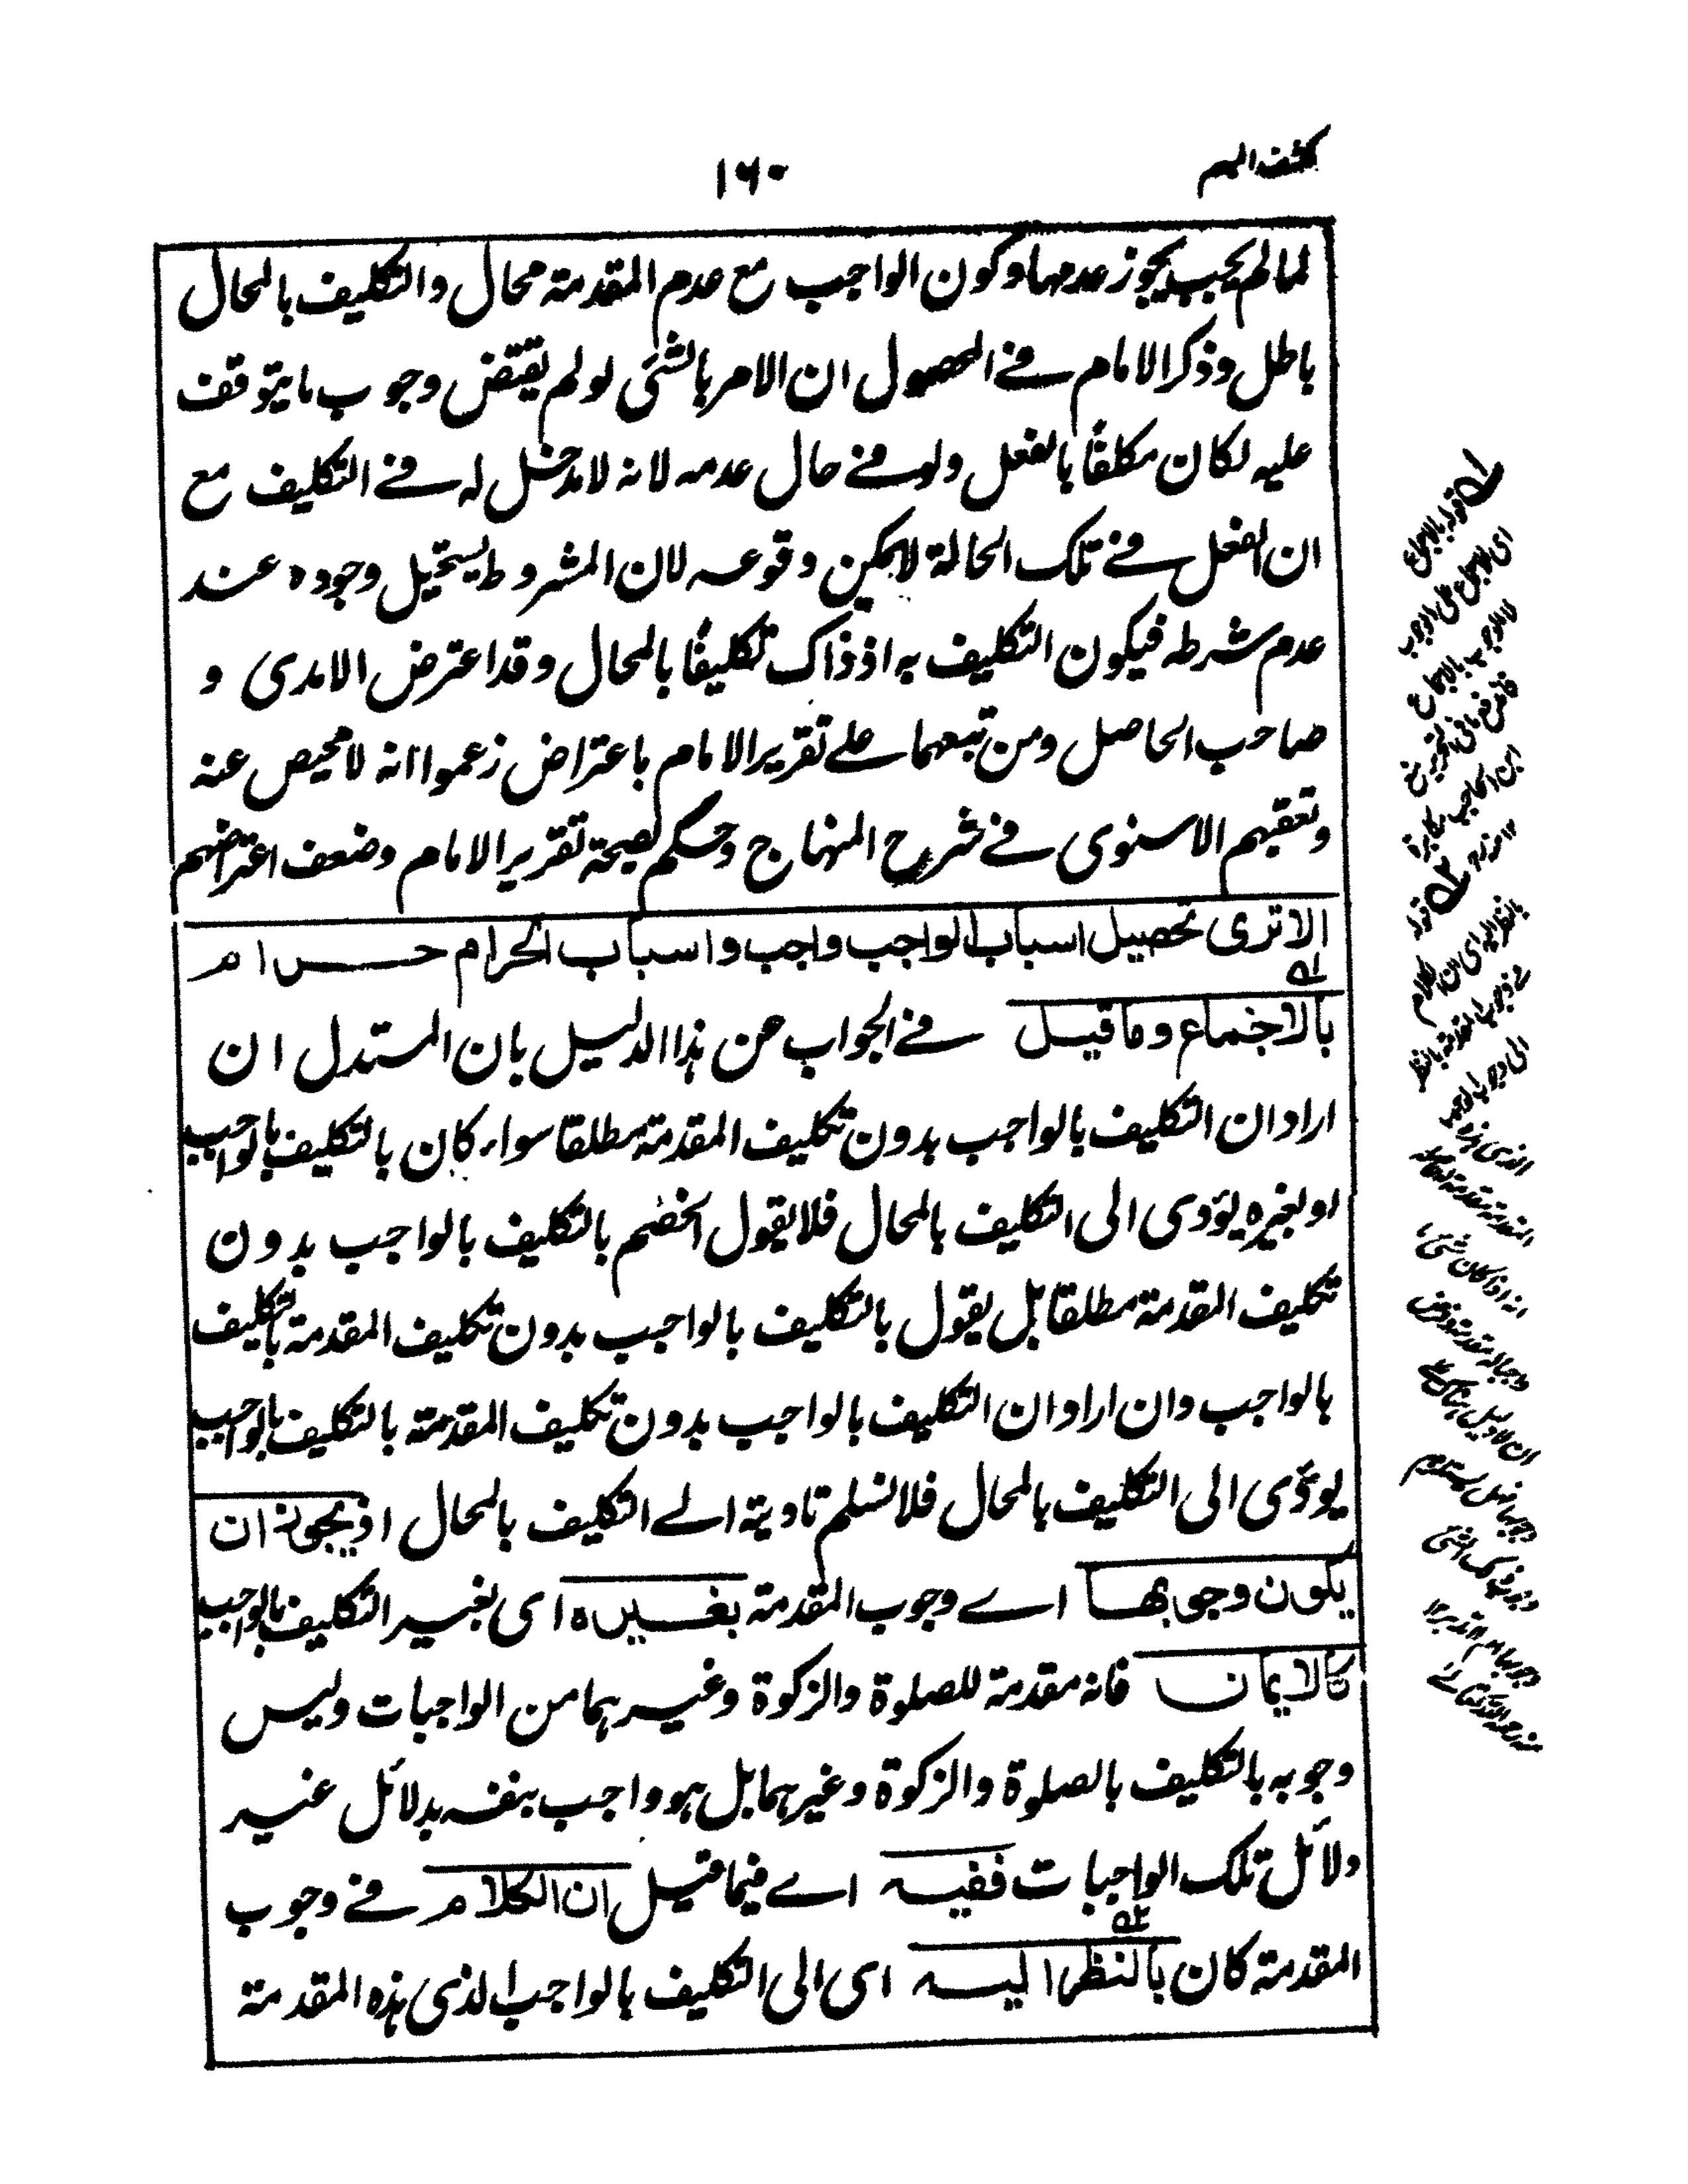 كشف المبهم
١٦٠
لما لم يجب يجوز عدمها وكون الواجب مع عدم المقدمة محال والتكليف بالمحال
باطل وذكر الامام فے المحصول ان الامر بالشئ لو لم يقتض وجوب ما يتوقف
عليه لكان مكلفًا بالفعل ولو فے حال عدمه لانه لا مدخل له فے التكليف مع
ان الفعل فے تلك الحالة لا يمكن وقوعه لان المشروط يستحيل وجوده عند
عدم شرطه فيكون التكليف به اذ ذاك تكليفًا بالمحال وقد اعترض الامدى و
صاحب الحاصل ومن تبعهما علے تقرير الامام باعتراض زعموا انه لا محيص عنه
وتعقبهم الاسنوى فے شرح المنهاج وحكم بصحة تقرير الامام وضعف اعتراضهم
الا ترى تحصيل اسباب الواجب واجب واسباب الحرام حرام
بالاجماع وما قيل فے الجواب عن هذا الدليل بان المستدل ان
اراد ان التكليف بالواجب بدون تكليف المقدمة مطلقا سواء كان بالتكليف بالواجب
او بغيره يؤدى الى التكليف بالمحال فلا يقول الخصم بالتكليف بالواجب بدون
تكليف المقدمة مطلقا بل يقول بالتكليف بالواجب بدون تكليف المقدمة بالتكليف
بالواجب وان اراد ان التكليف بالواجب بدون تكليف المقدمة بالتكليف بالواجب
يؤدى الى التكليف بالمحال فلا نسلم تاديته الے التكليف بالمحال اذ يجوز ان
يكون وجوبها اے وجوب المقدمة بغيره اى بغير التكليف بالواجب
كالايمان فانه مقدمة للصلوة والزكوة وغيرهما من الواجبات وليس
وجوبه بالتكليف بالصلوة والزكوة وغيرهما بل هو واجب بنفسه بدلائل غير
دلائل تلك الواجبات ففيه اے فيما قيل ان الكلام فے وجوب
المقدمة كان بالنظر اليه اى الى التكليف بالواجب الذى هذه المقدمة
قوله بالاجماع
اى لاجل
ابن الحاجب
قوله
بالنظر اليه اى ان الكلام
فے وجوب المقدمة بالنظر
الى وجوب الواجب
الذى هذه
المقدمة مقدمة
انه اذا كان شئ